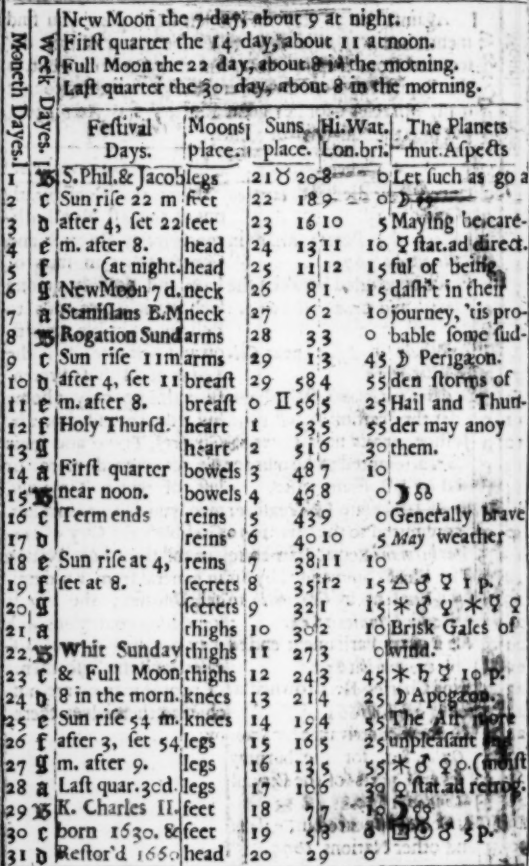 New Moon the 7 day, about 9 at night.
Firſt quarter the 14 day, about 11 at noon.
Full Moon the 22 day, about 8 in the morning.
Laſt quarter the 30 day, about 8 in the morning.
Moneth Dayes. Week Dayes. Feſtival Days. Moons place. Suns place. Hi. Wat. Lon. bri. The Planets mut. Aſpects
1 B S. Phil. & Jacob legs 21 ♉ 20 8 0 Let ſuch as go a
2 c Sun riſe 22 m feet 22 18 9 0 ☽
3 d after 4, ſet 22 feet 23 16 10 5 Maying be care-
4 e m. after 8. head 24 13 11 10 ☿ ſtat. ad direct.
5 f (at night. head 25 11 12 15 ful of being
6 g New Moon 7 d. neck 26 8 1 15 daſh't in their
7 a Staniſlaus E. M neck 27 6 2 10 journey, 'tis pro-
8 B Rogation Sund arms 28 3 3 0 bable ſome ſud-
9 c Sun riſe 11 m arms 29 1 3 45 ☽ Perigæon.
10 d after 4, ſet 11 breaſt 29 58 4 55 den ſtorms of
11 e m. after 8. breaſt 0 ♊ 56 5 25 Hail and Thun-
12 f Holy Thurſd. heart 1 53 5 55 der may anoy
13 g heart 2 51 6 30 them.
14 a Firſt quarter bowels 3 48 7 10
15 B near noon. bowels 4 46 8 0 ☽ ☊
16 c Term ends reins 5 43 9 0 Generally brave
17 d reins 6 40 10 5 May weather
18 e Sun riſe at 4, reins 7 38 11 10
19 f ſet at 8. ſecrets 8 35 12 15 △ ♂ ☿ 1 p.
20 g ſecrets 9 32 1 15 ✶ ♂ ☿ ✶ ☿ ♀
21 a thighs 10 30 2 10 Brisk Gales of
22 B Whit Sunday thighs 11 27 3 0 wind.
23 c & Full Moon thighs 12 24 3 45 ✶ ♄ ☿ 10 p.
24 d 8 in the morn. knees 13 21 4 25 ☽ Apogæon.
25 e Sun riſe 54 m. knees 14 19 4 55 The Air more
26 f after 3, ſet 54 legs 15 16 5 25 unpleaſant
27 g m. after 9. legs 16 13 5 55 ✶ ♂ ♀ 0. (moiſt
28 a Laſt quar. 30d. legs 17 10 6 30 ♀ ſtat. ad retrog.
29 B K. Charles II. feet 18 7 7 10 ☽ ☋
30 c born 1630. & feet 19 5 8 0 □ ☉ ♂ 5 p.
31 d Reſtor'd 1660 head 20 2 9